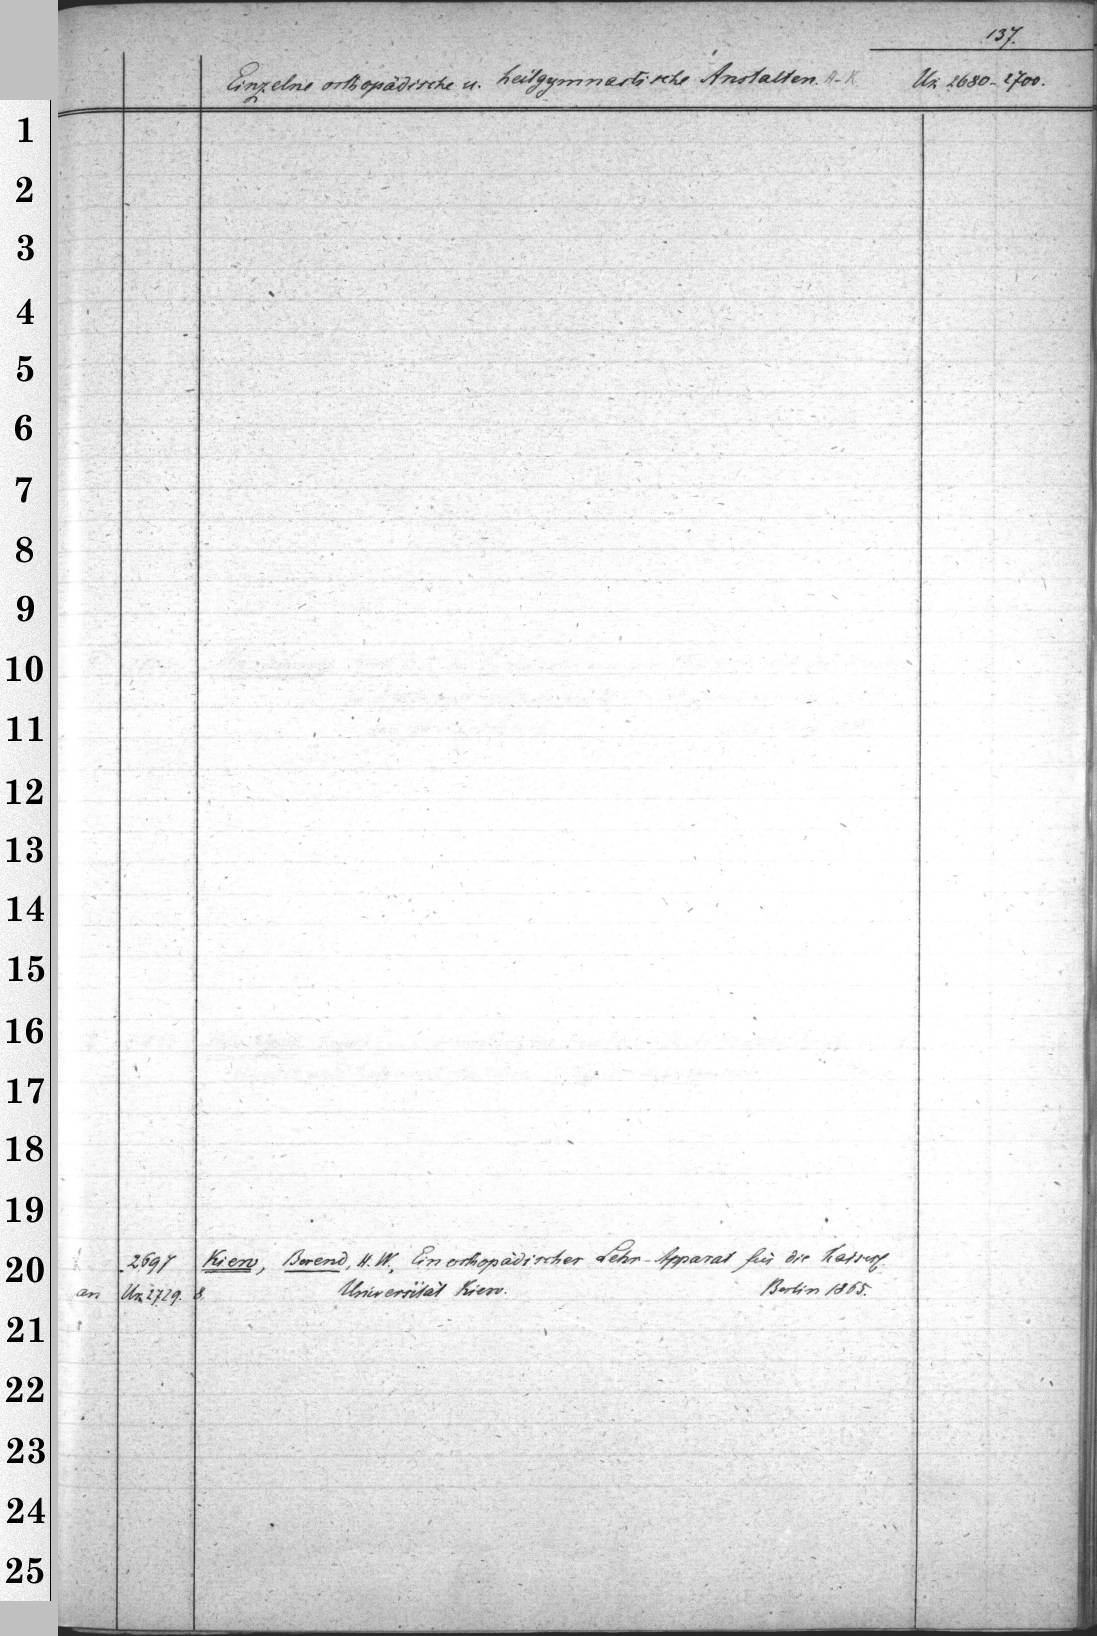 137.
Einzelne orthopädische u. heilgymnastische Anstalten. A-K Uz 2680-2700.
1
2
3
4
5
6
7
8
9
10
11
12
13
14
15
16
17
18
19
20
2697 Kiew, Berend, H. W., Ein orthopädischer Lehr-Apparat für die Kaiserl.
an Uz 2729. 8 Universität Kiew. Berlin 1865.
21
22
23
24
25